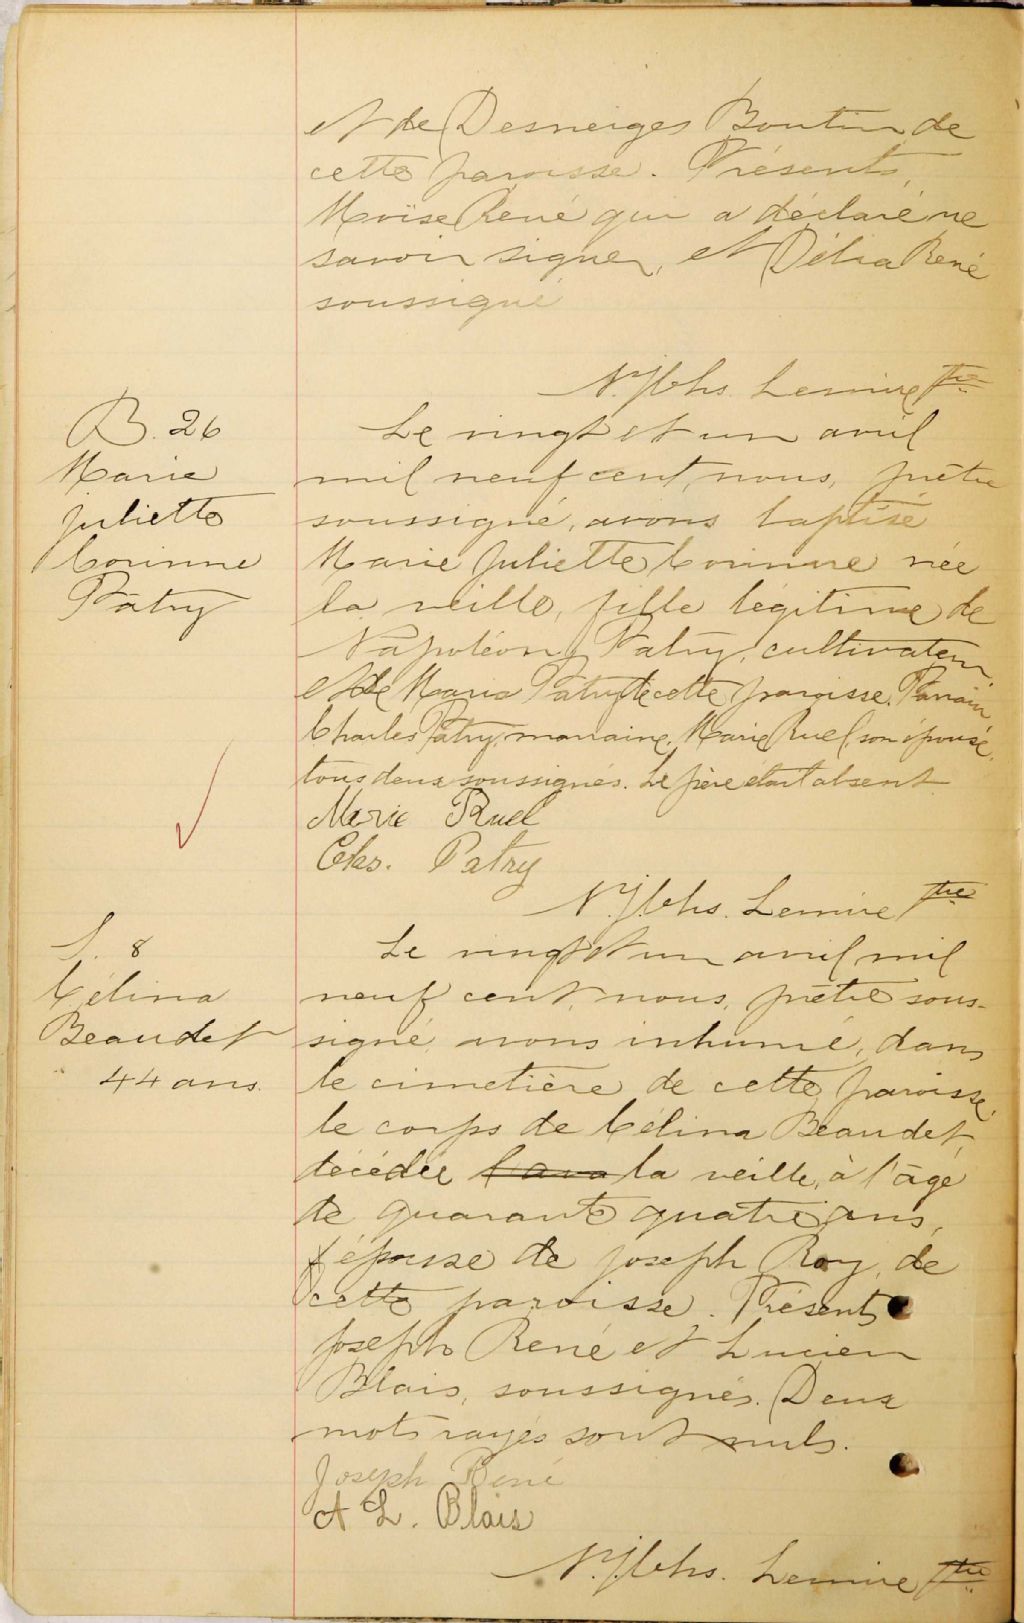 et de Desneiges Boutin, de
cette paroisse. Présents
Moïse René qui a déclaré ne
savoir signer, et Délia René
soussigné
N. J. Chs. Lemire ptre
B. 26
Marie
Juliette
Corinne
Patry
Le vingt et un avril
mil neuf cent, nous, prêtre
soussigné, avons baptisé
Marie Juliette Corinne née
la veille, fille légitime de
Napoléon Patry, cultivateur,
et de Maria Patry de cette paroisse. Parrain,
Charles Patry, marraine, Marie Ruel, son épouse,
tous deux soussignés. Le père était absent.
Marie Ruel
Chs. Patry
N. J. Chs. Lemire ptre
S. 8
Célina
Beaudet
44 ans.
Le vingt et un avril mil
neuf cent, nous, prêtre sous-
signé, avons inhumé, dans
le cimetière de cette paroisse,
le corps de Célina Beaudet
décédée la veille, à l'âge
de quarante quatre ans,
épouse de Joseph Roy, de
cette paroisse. Présents
Joseph René et Lucien
Blais, soussignés. Deux
mots rayés sont nuls.
Joseph René
A L. Blais
N. J. Chs. Lemire ptre